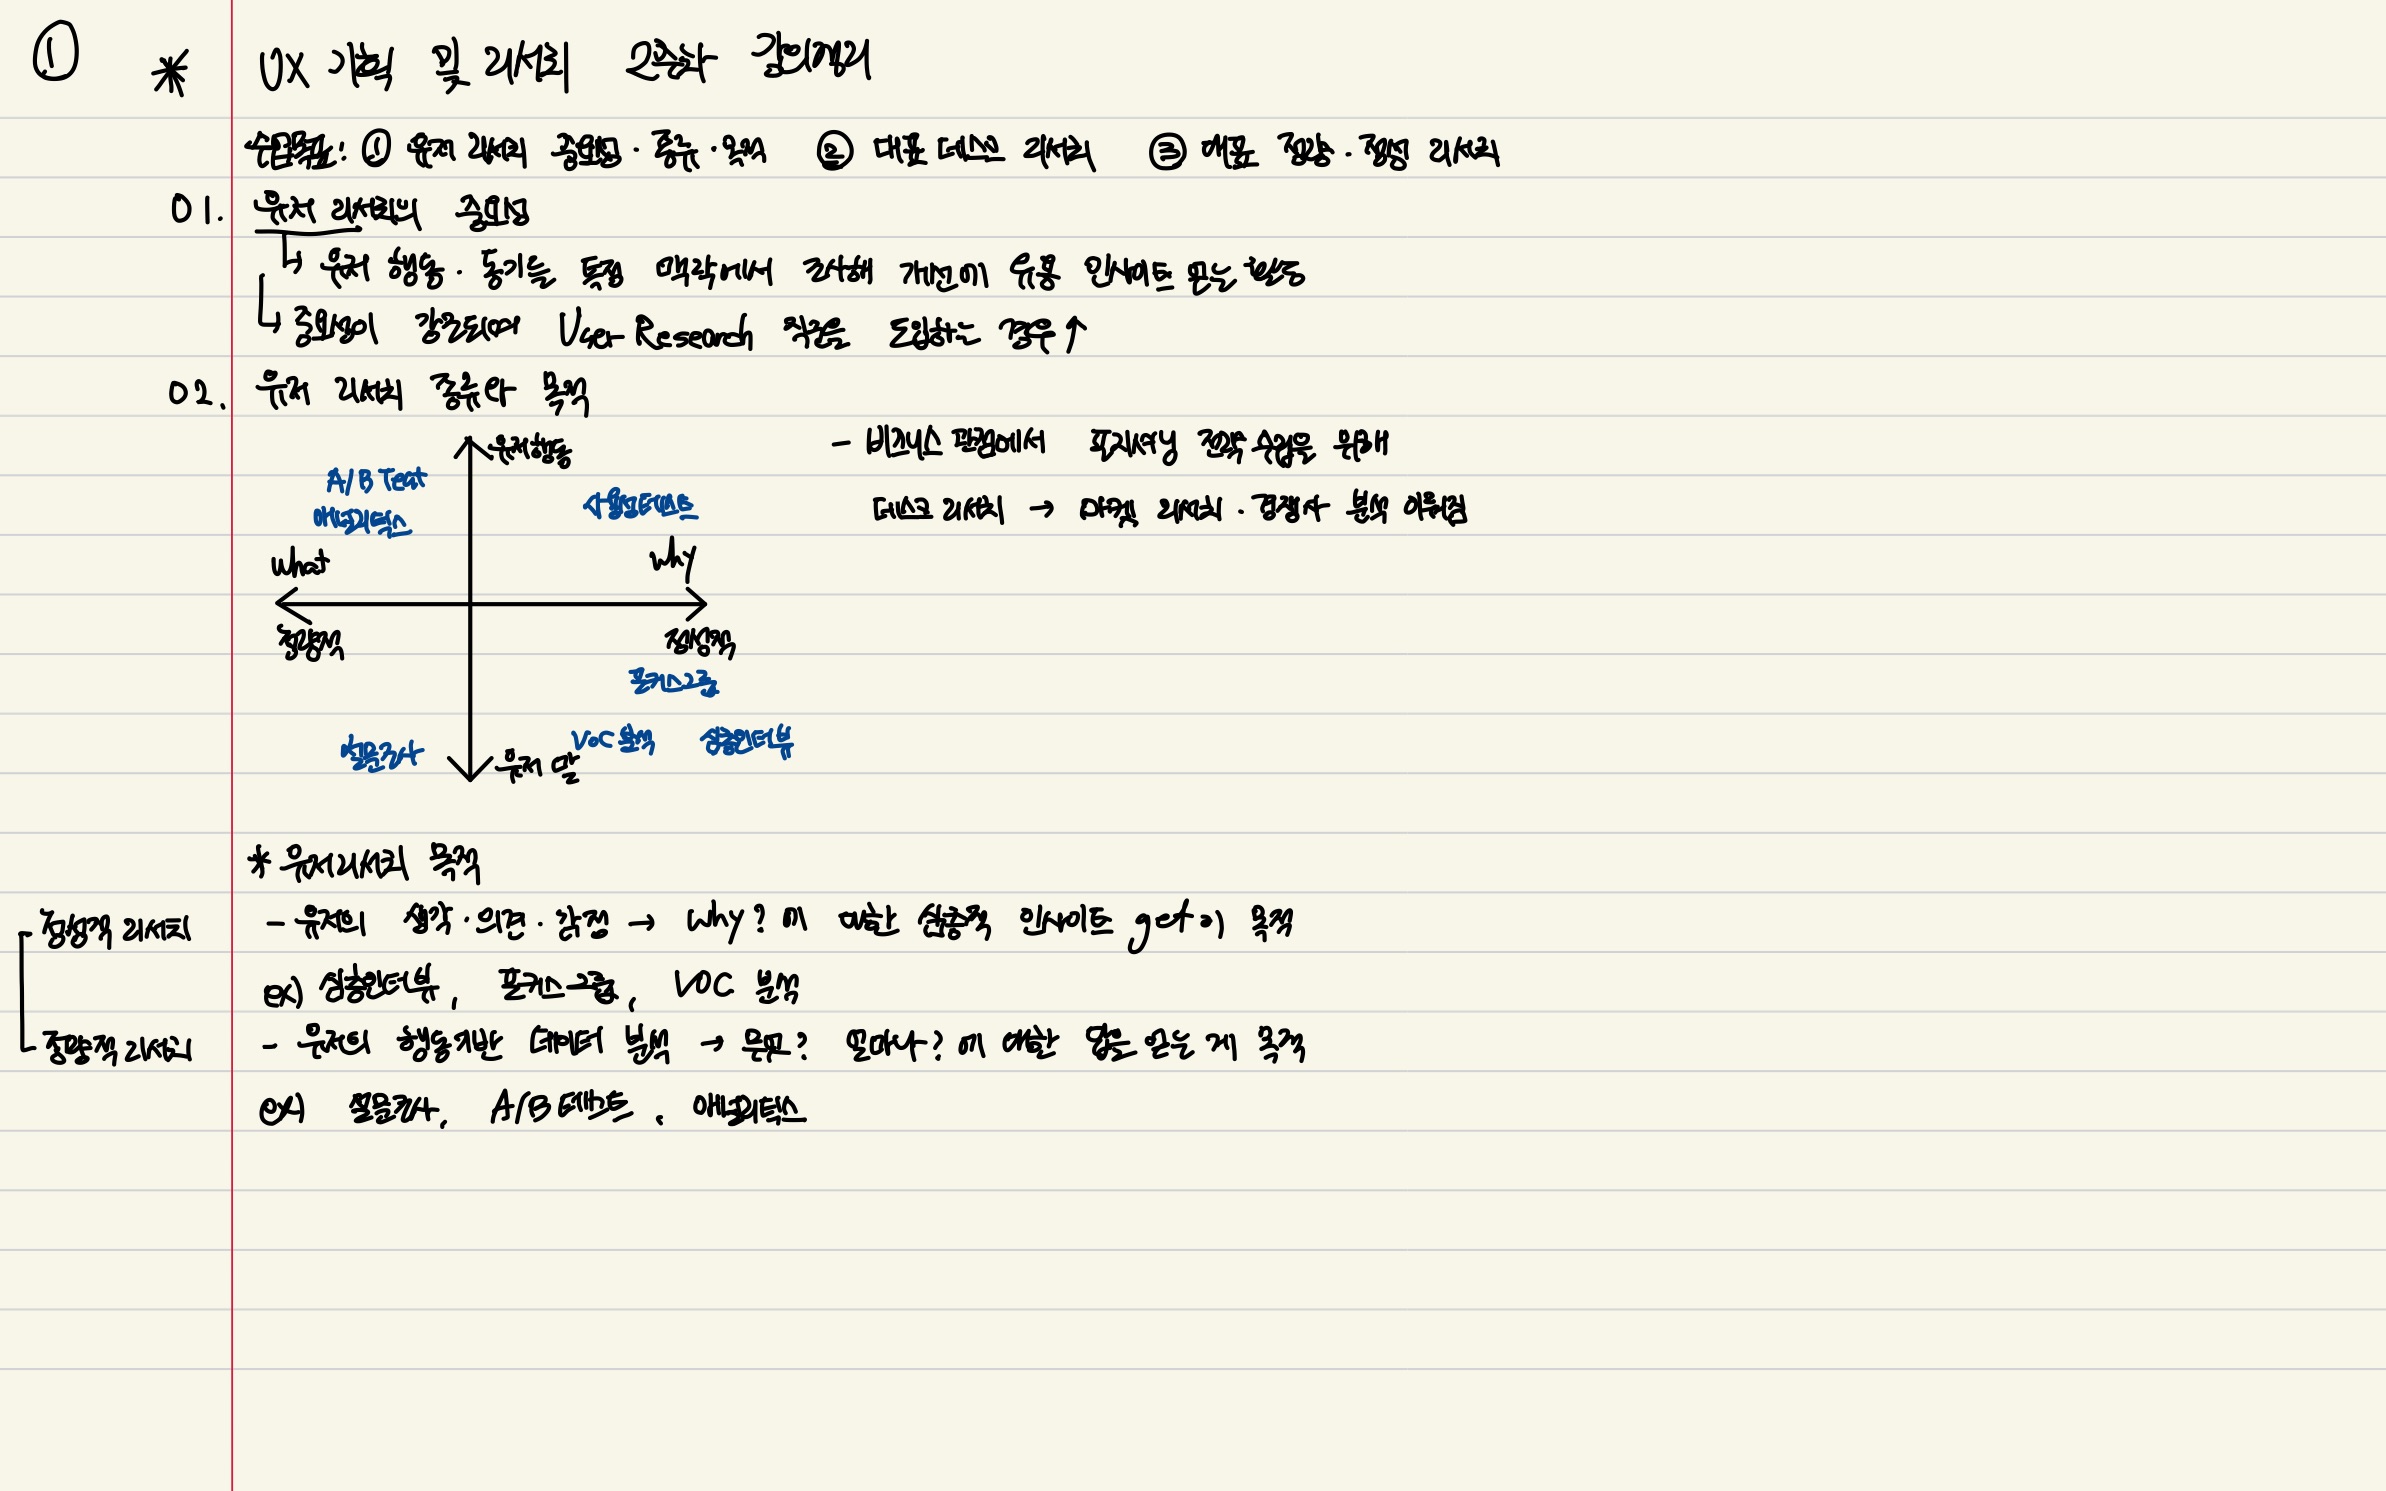 ①
* UX 기획 및 리서치 2주차 강의정리
수업목표! ① 유저 리서치 중요성·종류·목적 ② 대표 데스크 리서치 ③ 대표 정량·정성 리서치
01. 유저 리서치의 중요성
↳ 유저 행동·동기를 특정 맥락에서 조사해 개선에 유용 인사이트 얻는 활동
↳ 중요성이 강조되어 User Research 직군을 도입하는 경우↑
02. 유저 리서치 종류와 목적
유저행동
- 비즈니스 관점에서 포지셔닝 전략 수립을 위해
A/B Test
애널리틱스
사용성테스트
데스크 리서치 → 마켓 리서치·경쟁사 분석 이뤄짐
What
Why
정량적
정성적
포커스그룹
설문조사
VOC 분석
심층인터뷰
유저 말
* 유저리서치 목적
정성적 리서치 - 유저의 생각·의견·감정 → Why? 에 대한 심층적 인사이트 get이 목적
ex) 심층인터뷰, 포커스그룹, VOC 분석
정량적 리서치 - 유저의 행동기반 데이터 분석 → 무엇? 얼마나? 에 대한 답을 얻는 게 목적
ex) 설문조사, A/B 테스트, 애널리틱스